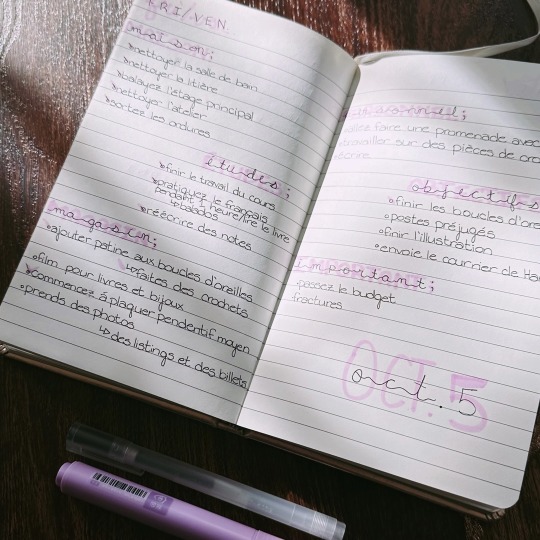 FRI/VEN.
maison;
nettoyer la salle de bain
nettoyer la litière
balayez l'étage principal
nettoyer l'atelier
sortez les ordures
études;
finir le travail du cours
pratiquez le français
pendant 1 heure/lire le livre
↳balados
réécrire des notes
magasin;
ajouter patine aux boucles d'oreilles
↳faites des crochets
film pour livres et bijoux
commencez à plaquer pendentif moyen
prends des photos
↳ des listings et des billets
personnel;
allez faire une promenade avec
travailler sur des pièces de
écrire
objectifs
finir les boucles
postes préjugés
finir l'illustration
envoie le courrier de
important;
passez le budget
fractures
OCT. 5
oct. 5